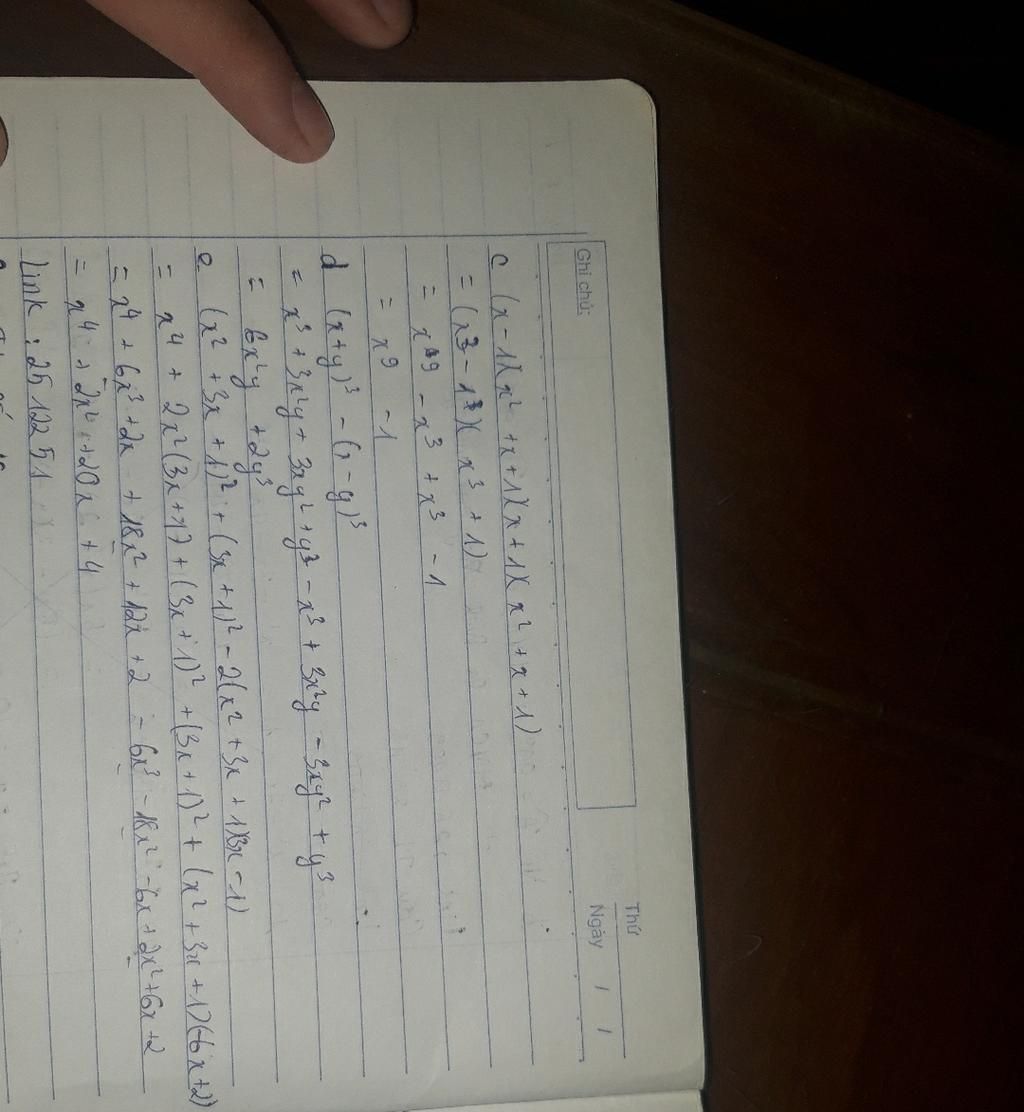 Thứ
Ngày / /
Ghi chú:
c (x - 1)(x² + x + 1)(x + 1)( x² + x + 1)
= (x³ - 1³)( x³ + 1)
= x⁹ - x³ + x³ - 1
= x⁹ - 1
d (x+y)³ - (x - y)³
= x³ + 3x²y + 3xy² + y³ - x³ + 3x²y - 3xy² + y³
= 6x²y + 2y³
e (x² + 3x + 1)² + (3x + 1)² - 2(x² + 3x + 1)(3x - 1)
= x⁴ + 2x²(3x + 1) + (3x + 1)² + (3x + 1)² + (x² + 3x + 1)(-6x + 2)
= x⁴ + 6x³ + 2x + 18x² + 12x + 2 - 6x³ - 18x² - 6x + 2x² + 6x + 2
= x⁴ + 2x² + 20x + 4
Link : 25 122 51